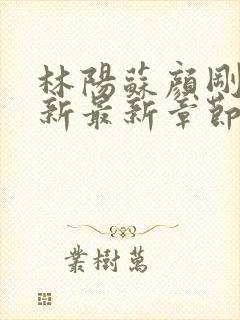 林陽蘇顏剛
新最新章節
業樹萬